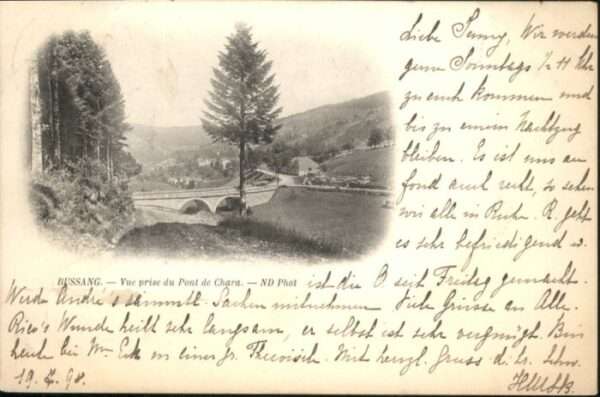 Liebe Jenny, Wir werden
gern Sonntags 1/2 11 Uhr
zu euch kommen und
bis zu einem Nachtzug
bleiben. Es ist uns au
fond auch recht, so sehen
wir alle in Ruhe. R. geht
es sehr befriedigend u.
BUSSANG. — Vue prise du Pont de Chara. — ND Phot
ist die B seit Freitag gemacht.
Werde André's sämmtl. Sachen mitnehmen Viele Grüsse an Alle.
Rico's Wunde heilt sehr langsam, er selbst ist sehr vergnügt. Bin
heute bei in einer gr. Mit herzl. Gruss
19. 98.